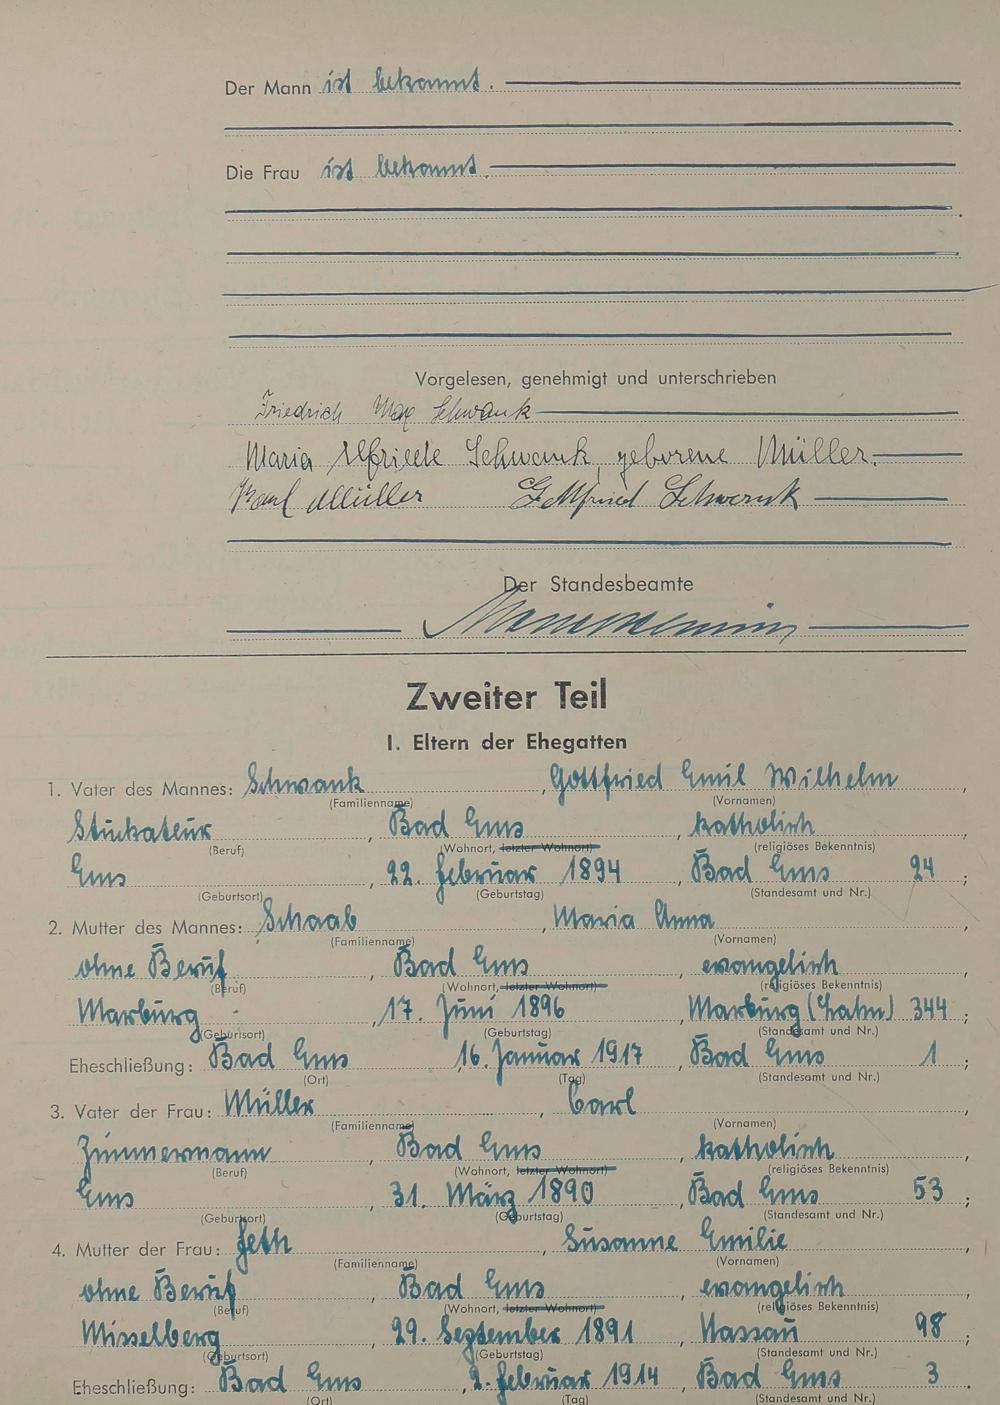 Der Mann ist bekannt.
Die Frau ist bekannt.
Vorgelesen, genehmigt und unterschrieben
Friedrich Max Schwank
Maria Elfriede Schwank, geborene Müller.
Karl Müller Gottfried Schwank
Der Standesbeamte
Zweiter Teil
I. Eltern der Ehegatten
1. Vater des Mannes: Schwank, Gottfried Emil Wilhelm,
(Familienname) (Vornamen)
Stuckateur, Bad Ems, katholisch,
(Beruf) (Wohnort, letzter Wohnort) (religiöses Bekenntnis)
Ems, 22. Februar 1894, Bad Ems 24;
(Geburtsort) (Geburtstag) (Standesamt und Nr.)
2. Mutter des Mannes: Schaab, Maria Anna,
(Familienname) (Vornamen)
ohne Beruf, Bad Ems, evangelisch,
(Beruf) (Wohnort, letzter Wohnort) (religiöses Bekenntnis)
Marburg, 17. Juni 1896, Marburg (Lahn) 344;
(Geburtsort) (Geburtstag) (Standesamt und Nr.)
Eheschließung: Bad Ems, 16. Januar 1917, Bad Ems 1;
(Ort) (Tag) (Standesamt und Nr.)
3. Vater der Frau: Müller, Carl,
(Familienname) (Vornamen)
Zimmermann, Bad Ems, katholisch,
(Beruf) (Wohnort, letzter Wohnort) (religiöses Bekenntnis)
Ems, 31. März 1890, Bad Ems 53;
(Geburtsort) (Geburtstag) (Standesamt und Nr.)
4. Mutter der Frau: Feth, Susanne Emilie,
(Familienname) (Vornamen)
ohne Beruf, Bad Ems, evangelisch,
(Beruf) (Wohnort, letzter Wohnort) (religiöses Bekenntnis)
Misselberg, 29. September 1891, Nassau 98;
(Geburtsort) (Geburtstag) (Standesamt und Nr.)
Eheschließung: Bad Ems, 2. Februar 1914, Bad Ems 3.
(Ort) (Tag) (Standesamt und Nr.)